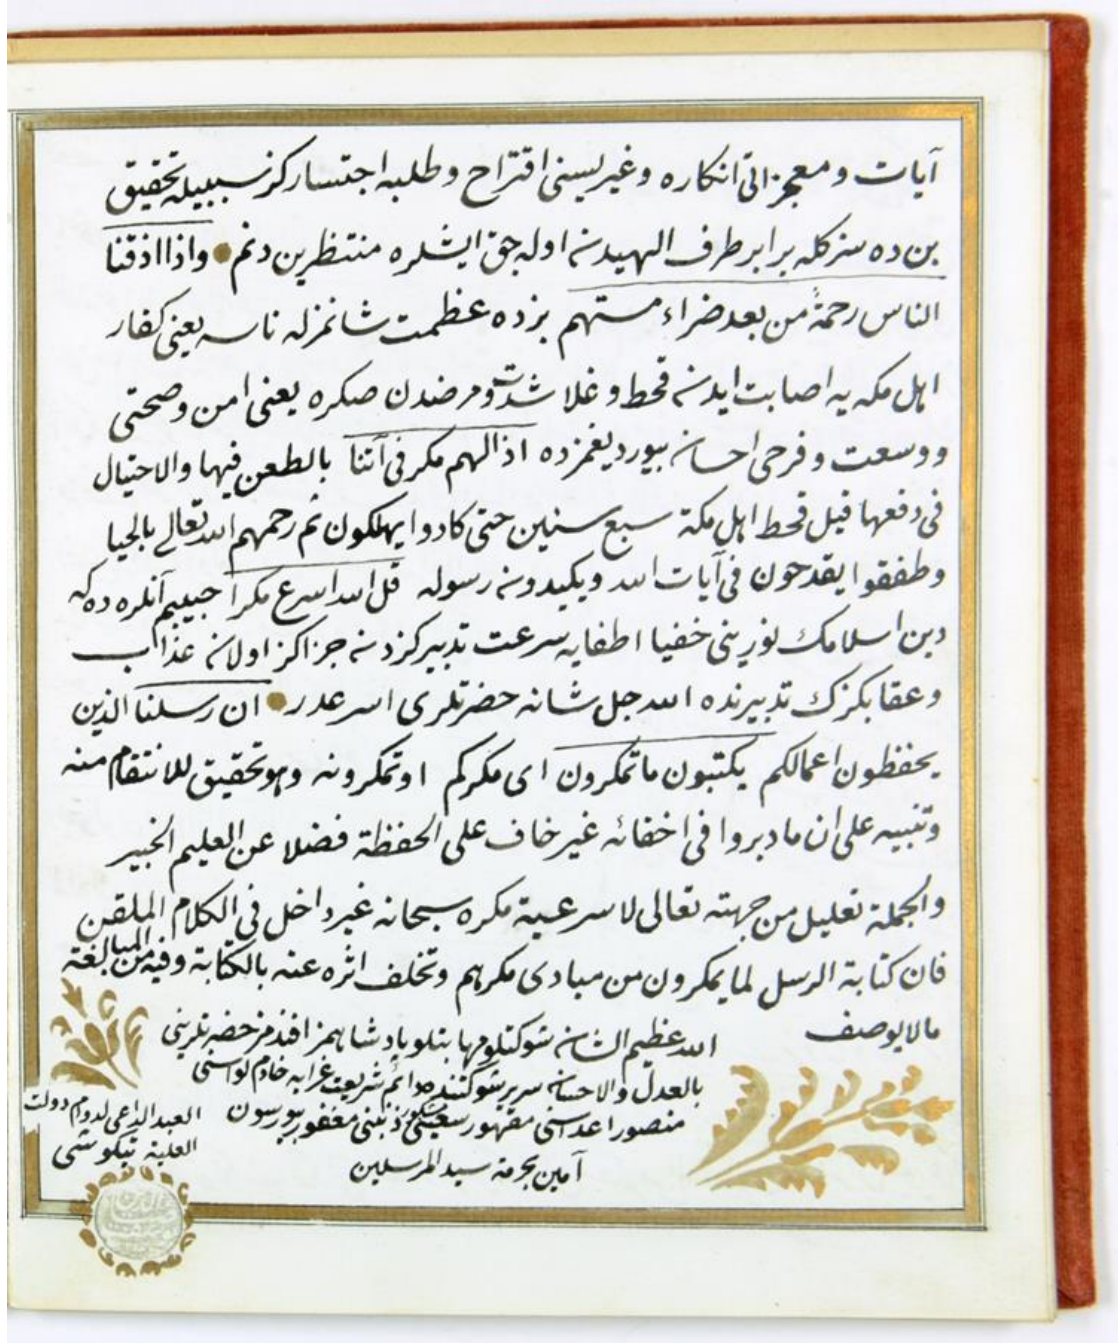 آيات و معجزاتى انكاره و غيريسنى اقتراح و طلبه اجتسار كز سببيله تحقيق
بن ده سزكله برابر طرف الهيدن اوله جق ايشلره منتظرين دنم واذا اذقنا
الناس رحمة من بعد ضراء مستهم بزده عظمت شانمزله ناسه يعنى كفار
اهل مكه يه اصابت ايدن قحط و غلا شدت و مرضدن صكره يعنى امن و صحتى
و وسعت و فرحى احسان بيورديغمزده اذا لهم مكر فى آتنا بالطعن فيها والاحتيال
فى دفعها قيل قحط اهل مكة سبع سنين حتى كادوا يهلكون ثم رحمهم الله تعالى بالحيا
وطفقوا يقدحون فى آيات الله ويكيدون رسوله قل الله اسرع مكرا حبيبم آنلره ده كه
دين اسلامك نورينى خفيا اطفايه سرعت تدبيركزدن جزاكز اولان عذاب
و عقابكزك تدبيرنده الله جل شانه حضرتلرى اسرعدر ان رسلنا الذين
يحفظون اعمالكم يكتبون ما تمكرون اى مكركم او تمكرونه وهو تحقيق للانتقام منه
وتنبيه على ان ما دبروا فى اخفائه غير خاف على الحفظة فضلا عن العليم الخبير
والجملة تعليل من جهته تعالى لاسرعية مكره سبحانه غير داخل فى الكلام الملقن
فان كتابة الرسل لما يمكرون من مبادى مكرهم وتخلف اثره عنه بالكتابة وفيه من المبالغة
مالايوصف
الله عظيم الشان شوكتلو مهابتلو پادشاهمز افندمز حضرتلرينى
بالعدل والاحسان سرير شوكتنده دوائم شريعت غرايه خادم لواسنى
منصور اعداسنى مقهور سعينى مشكور ذنبنى مغفور بيورسون
آمين بحرمة سيد المرسلين
العبد الداعى لدوام دولت
العلية